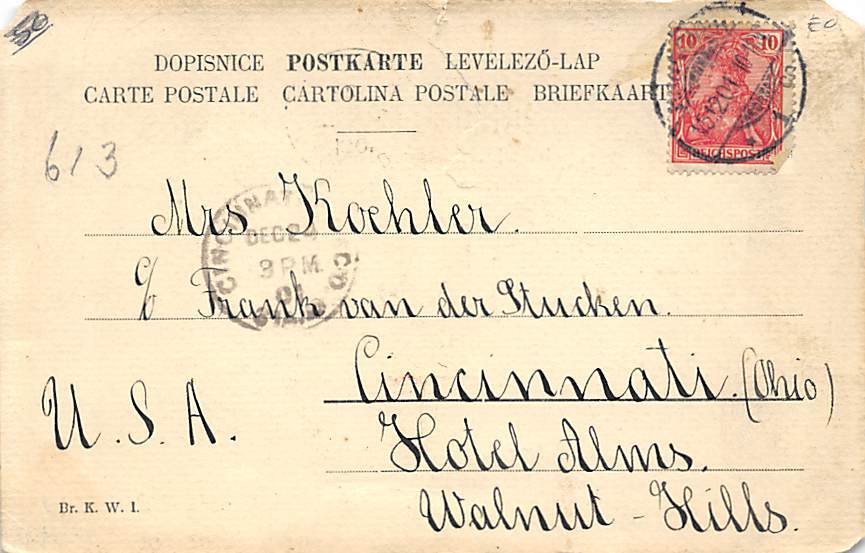 56
EO
10 10
DOPISNICE POSTKARTE LEVELEZŐ-LAP
CARTE POSTALE CARTOLINA POSTALE BRIEFKAART
REICHSPOST
613
Mrs Koehler.
CINCINNATI
DEC 24
3 PM
01
c/o Frank van der Stucken.
Cincinnati. (Ohio)
U. S. A.
Hotel Alms.
Walnut - Hills.
Br. K. W. I.